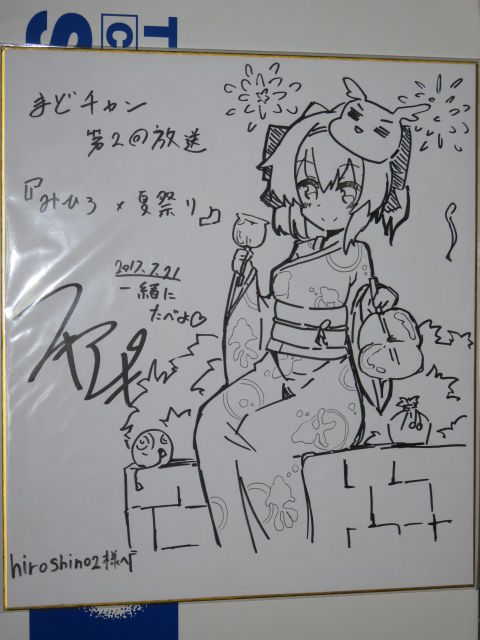 まどチャン
第2回放送
『みひろ×夏祭り』
2017.7.21
一緒に
たべよ♡
hiroshino2様へ